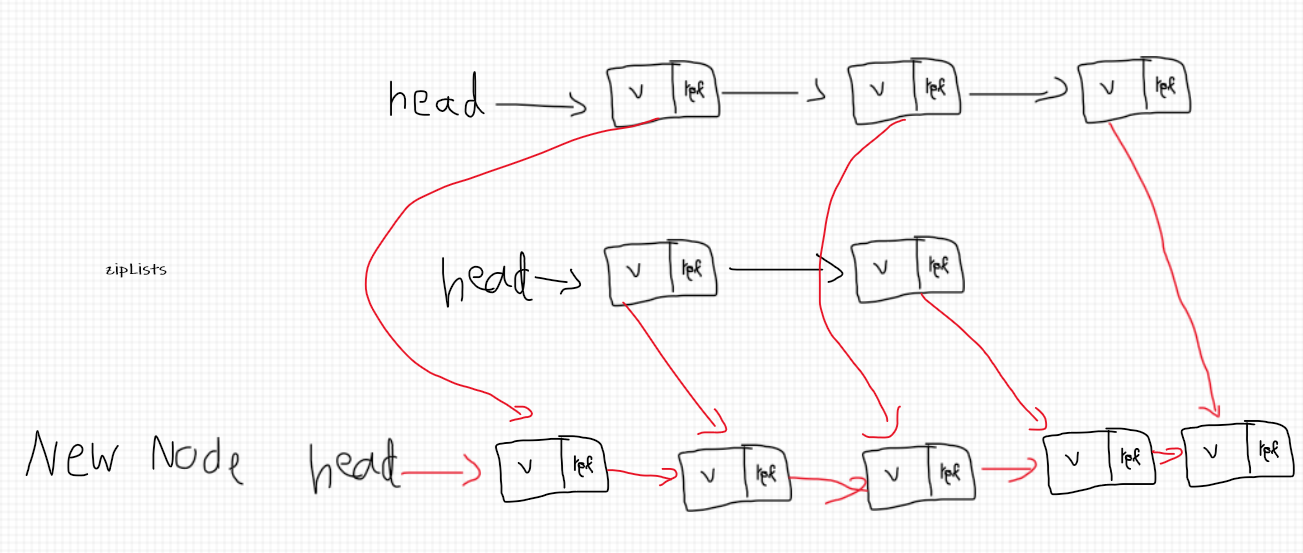 head v ref v ref v ref
zipLists
head v ref v ref
New Node head v ref v ref v ref v ref v ref